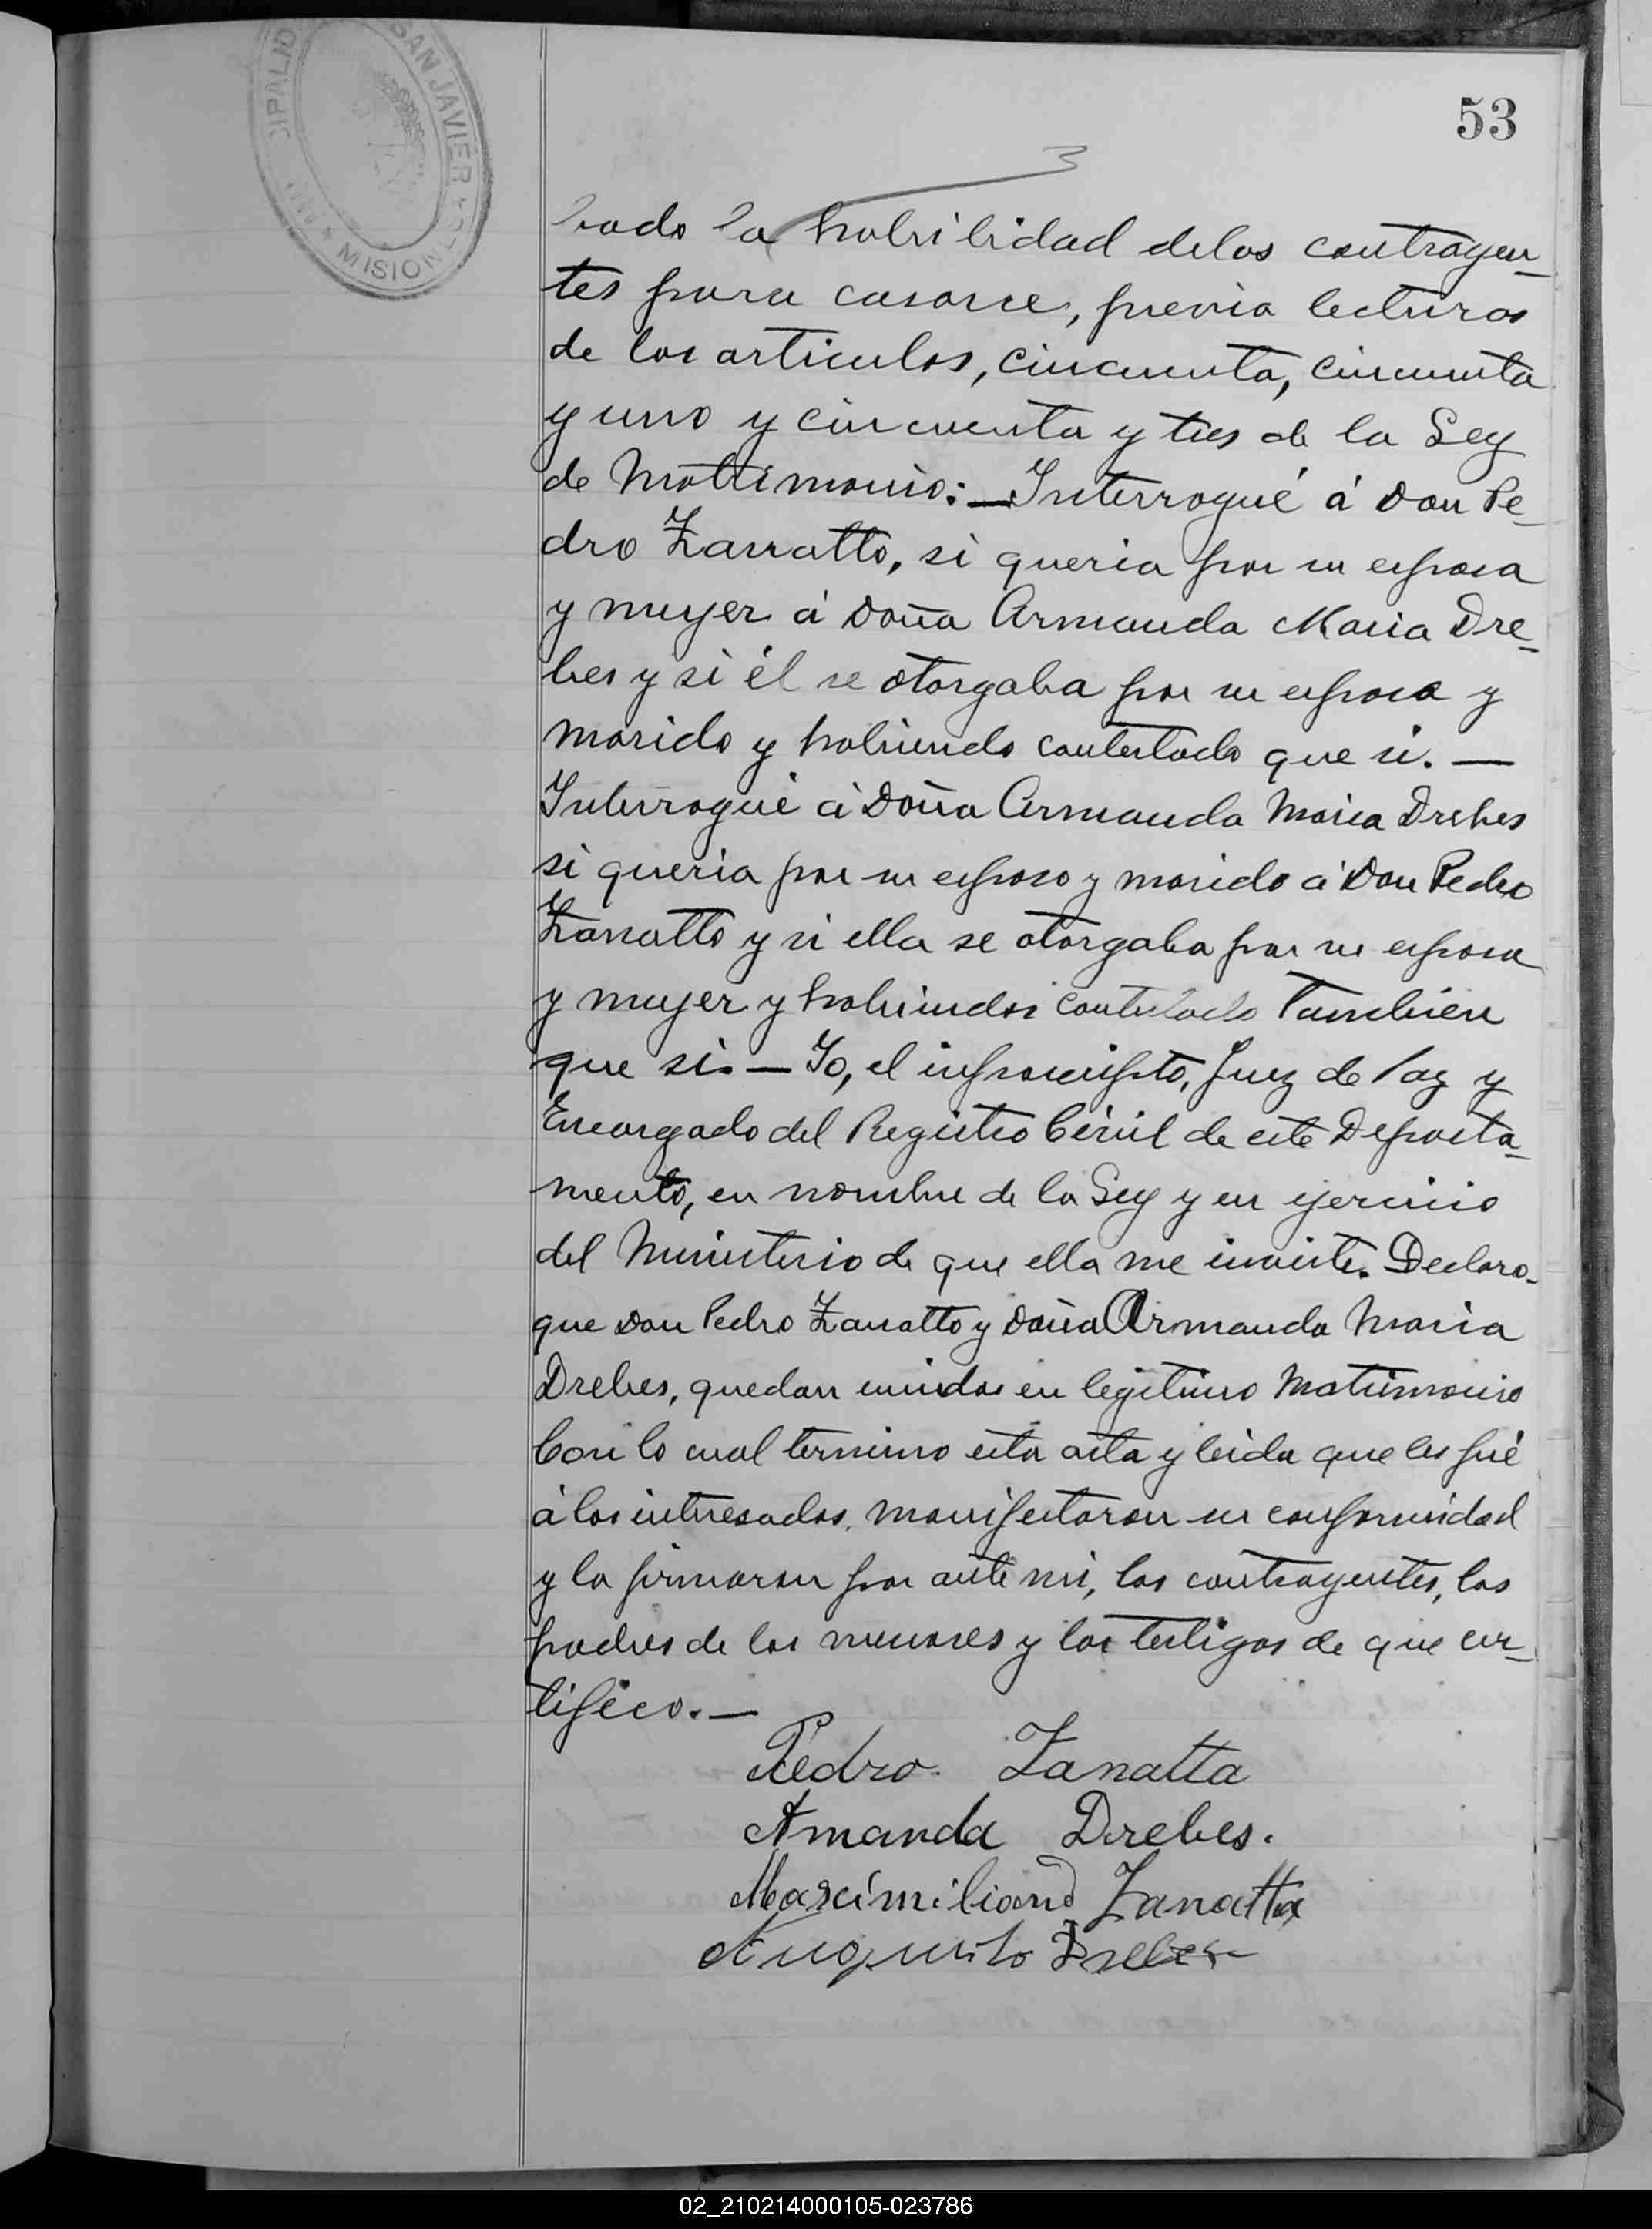 53
3
bado la habilidad delos contrayen-
tes para casarse, previa lecturas
de los articulos, cincuenta, cincuenta
y uno y cincuenta y tres de la Ley
de Matrimonio:—Interrogué á Don Pe-
dro Zanatto, si queria por su esposa
y mujer á Doña Armanda Maria Dre-
bes y si él se otorgaba por su esposo y
marido y habiendo contestado que si.—
Interrogué á Doña Armanda Maria Drebes
si queria por su esposo y marido á Don Pedro
Zanatto y si ella se otorgaba por su esposa
y mujer y habiendo contestado tambien
que si.— Yo, el infrascripto, Juez de Paz y
Encargado del Registro Civil de este Departa-
mento, en nombre de la Ley y en ejercicio
del Ministerio de que ella me inviste. Declaro-
que Don Pedro Zanatto y Doña Armanda Maria
Drebes, quedan unidos en legitimo Matrimonio
Con lo cual termino esta acta y leida que les fué
á los interesados, manifestaron su conformidad
y la firmaron por ante mi, los contrayentes, los
padres de los menores y los testigos de que cer-
tifico.—
Pedro Zanatta
Amanda Drebes.
Maximiliano Zanatta
Augusto Drebes
CIPALID SAN JAVIER
MISIONES
02_210214000105-023786